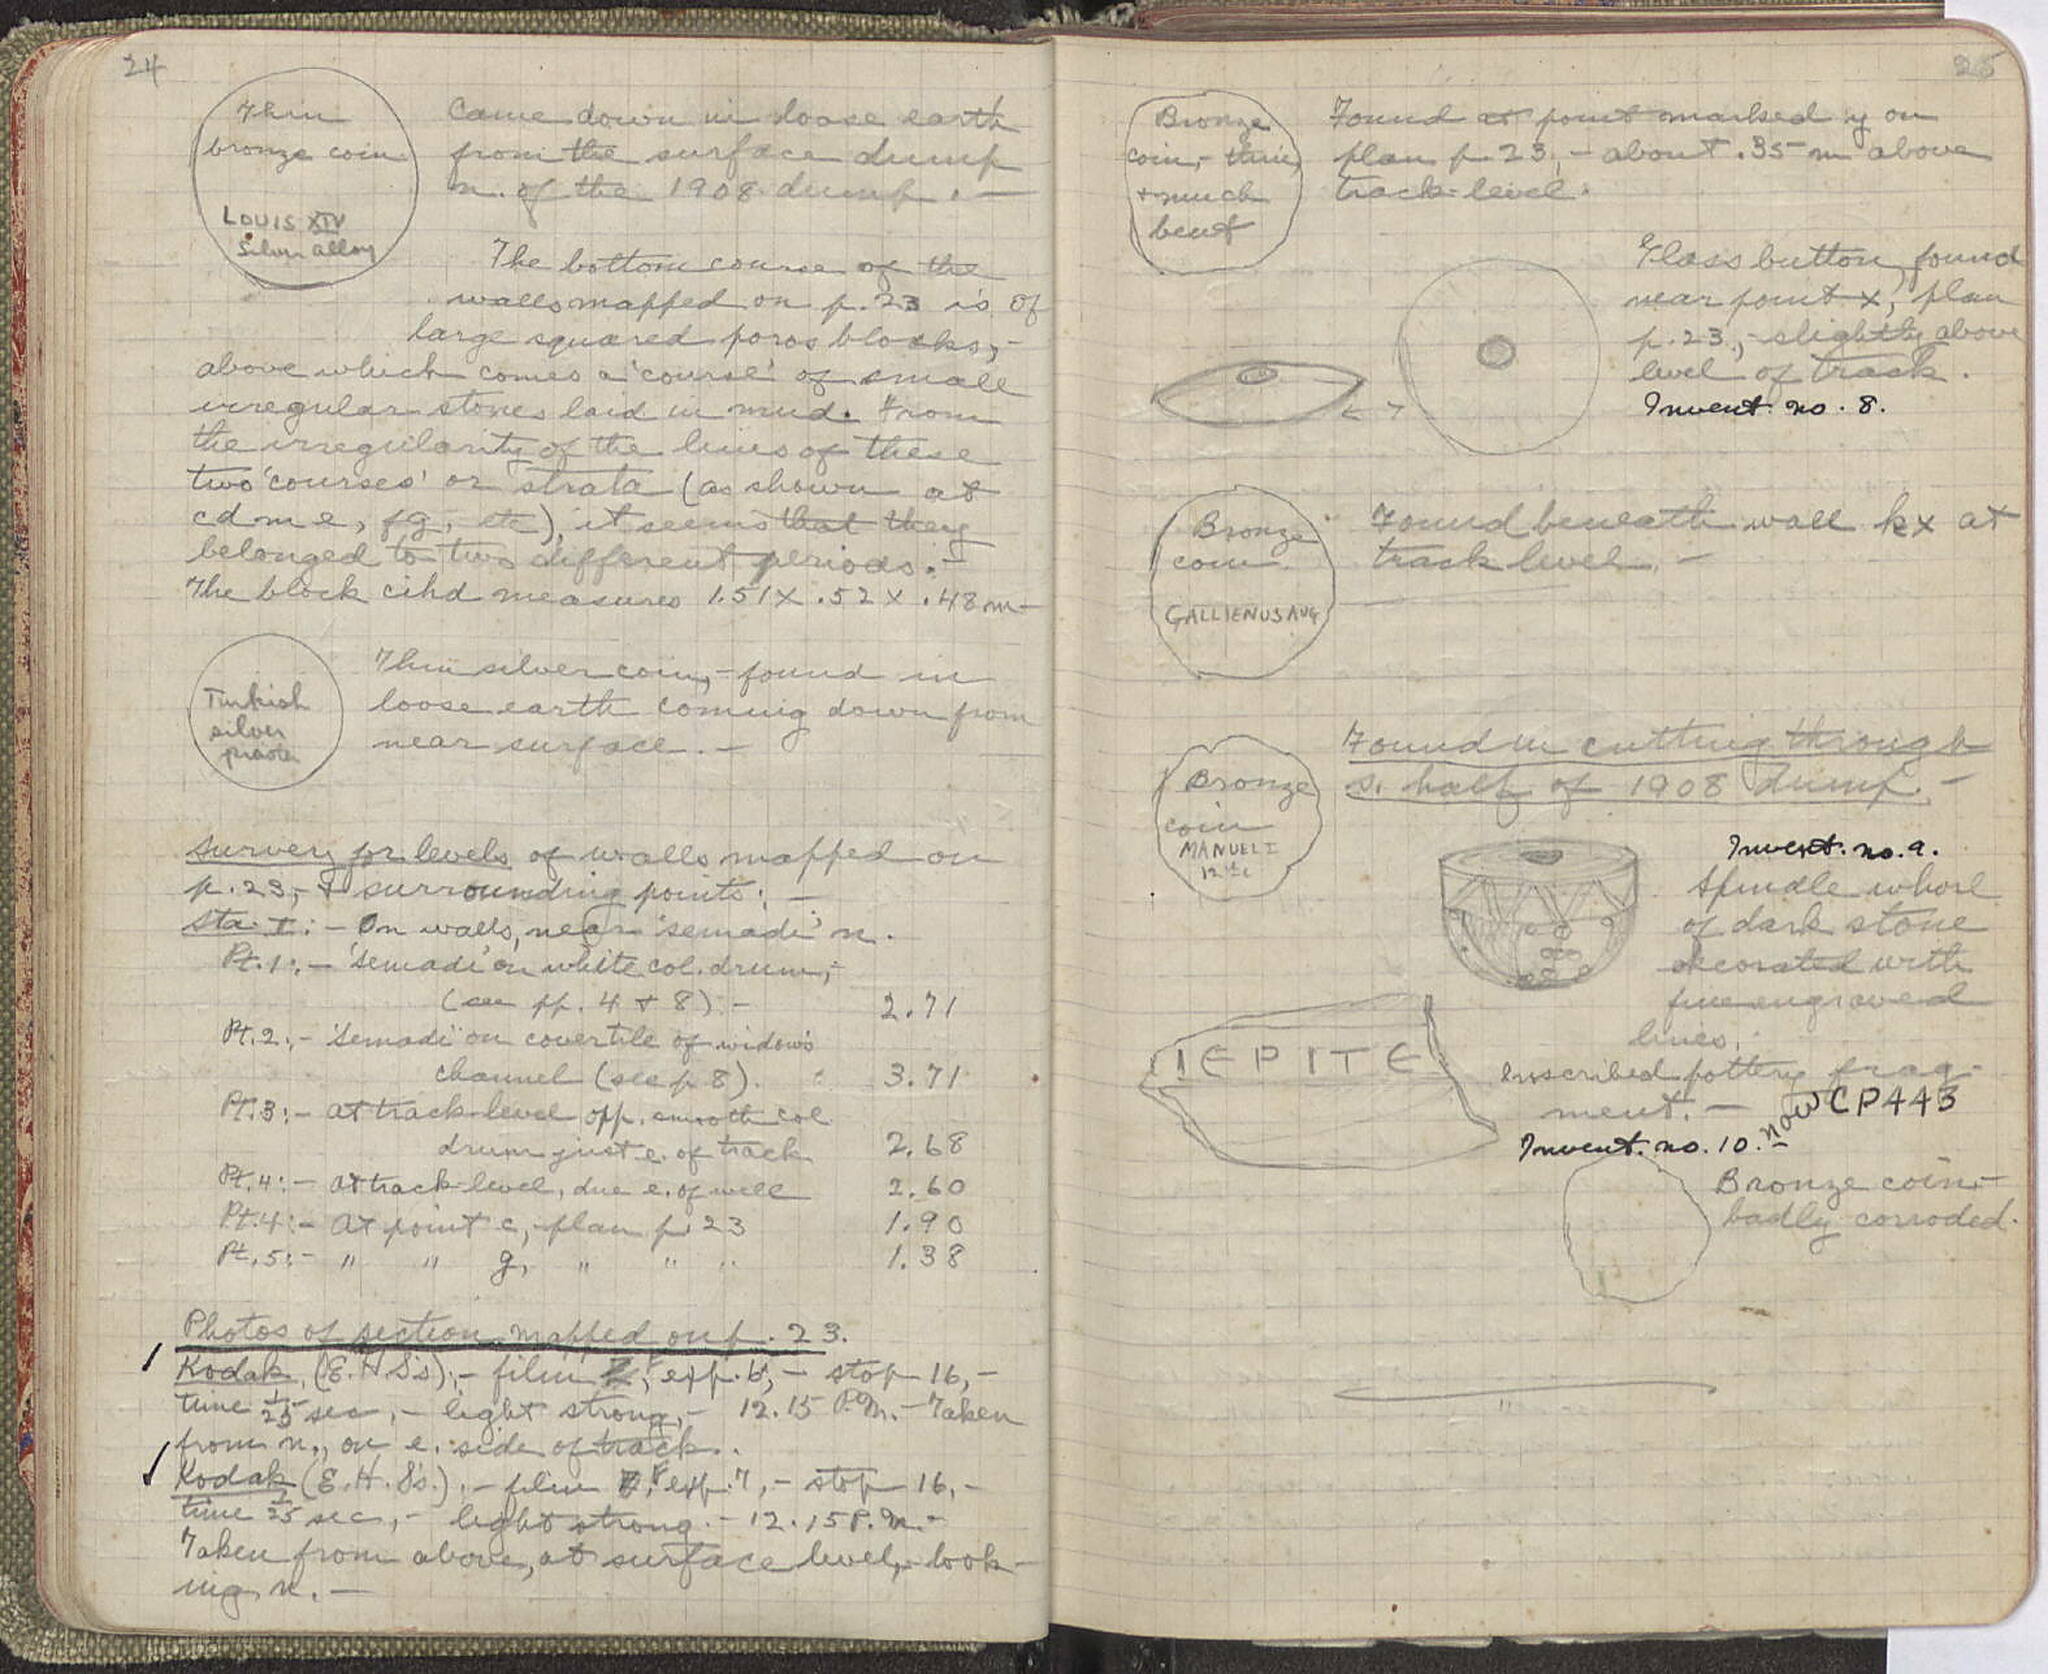 24
Thin
bronze coin.
LOUIS XIV
Silver alloy
Came down in loose earth
from the surface dump
n. of the 1908 dump. —
The bottom course of the
walls mapped on p. 23 is of
large squared poros blocks, -
above which comes a 'course' of small
irregular stones laid in mud. From
the irregularity of the lines of these
two 'courses' or strata (as shown at
c d m e, f g, etc), it seems that they
belonged to two different periods. -
The block cihd measures 1.51 x .52 x .48 m -
Turkish
silver
Thin silver coin, - found in
loose earth coming down from
near surface. -
Survey for levels of walls mapped on
p. 23, - & surrounding points: -
Sta. I: - On walls, near 'semadi' n.
Pt. 1: - 'Semadi' on white col. drum, -
(see pp. 4 & 8) - 2.71
Pt. 2: - 'Semadi' on cover tile of widow's
channel (see p 8). 3.71
Pt. 3: - At track-level opp. smooth col
drum just e. of track 2.68
Pt. 4: - At track-level, due e. of well 2.60
Pt. 4: - At point c, - plan p. 23 1.90
Pt. 5: - " " g, " " " 1.38
Photos of section mapped on p. 23.
Kodak (E.H.S's), - film F, exp. 6, - stop 16, -
time 1/25 sec, - light strong, - 12.15 P.M. - Taken
from n., on e. side of track.
Kodak (E.H.S's.), - film F, exp. 7, - stop 16, -
time 1/25 sec, - light strong. - 12.15 P.M. -
Taken from above, at surface level, - look-
ing n. —
25
Bronze
coin, - thin,
& much
bent
Found at point marked y on
plan p 23, - about .35 m above
track-level.
Glass button, found
near point x, plan
p. 23, - slightly above
level of track.
Invent. no. 8.
Bronze
coin.
GALLIENUS AUG
Found beneath wall kx at
track level. -
Found in cutting through
s. half of 1908 dump. -
Bronze
coin
MANUEL I
12th c
Invent. no. 9.
Spindle whorl
of dark stone
decorated with
fine engraved
lines.
ΙΕΡΙΤΕ
Inscribed pottery frag-
ment. — now CP443
Invent. no. 10. -
Bronze coin -
badly corroded.